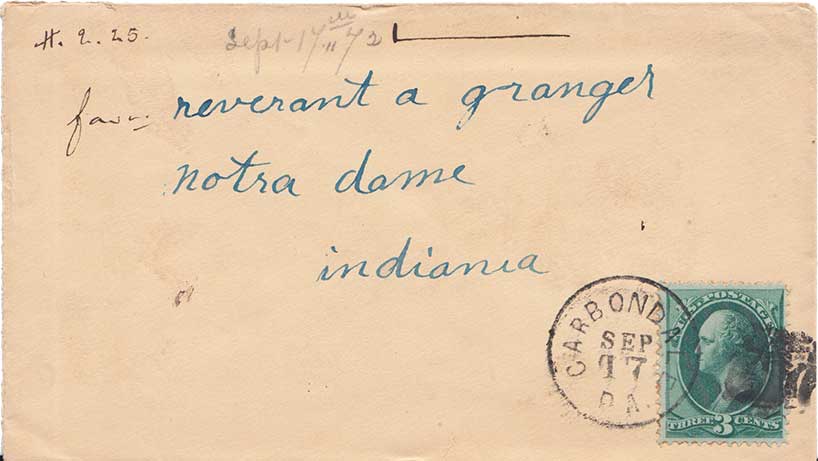 H. 2. 25.
Sept 17 72
reverant a granger
notra dame
indiania
CARBONDAL
SEP
17
PA.
U.S. POSTAGE
THREE 3 CENTS